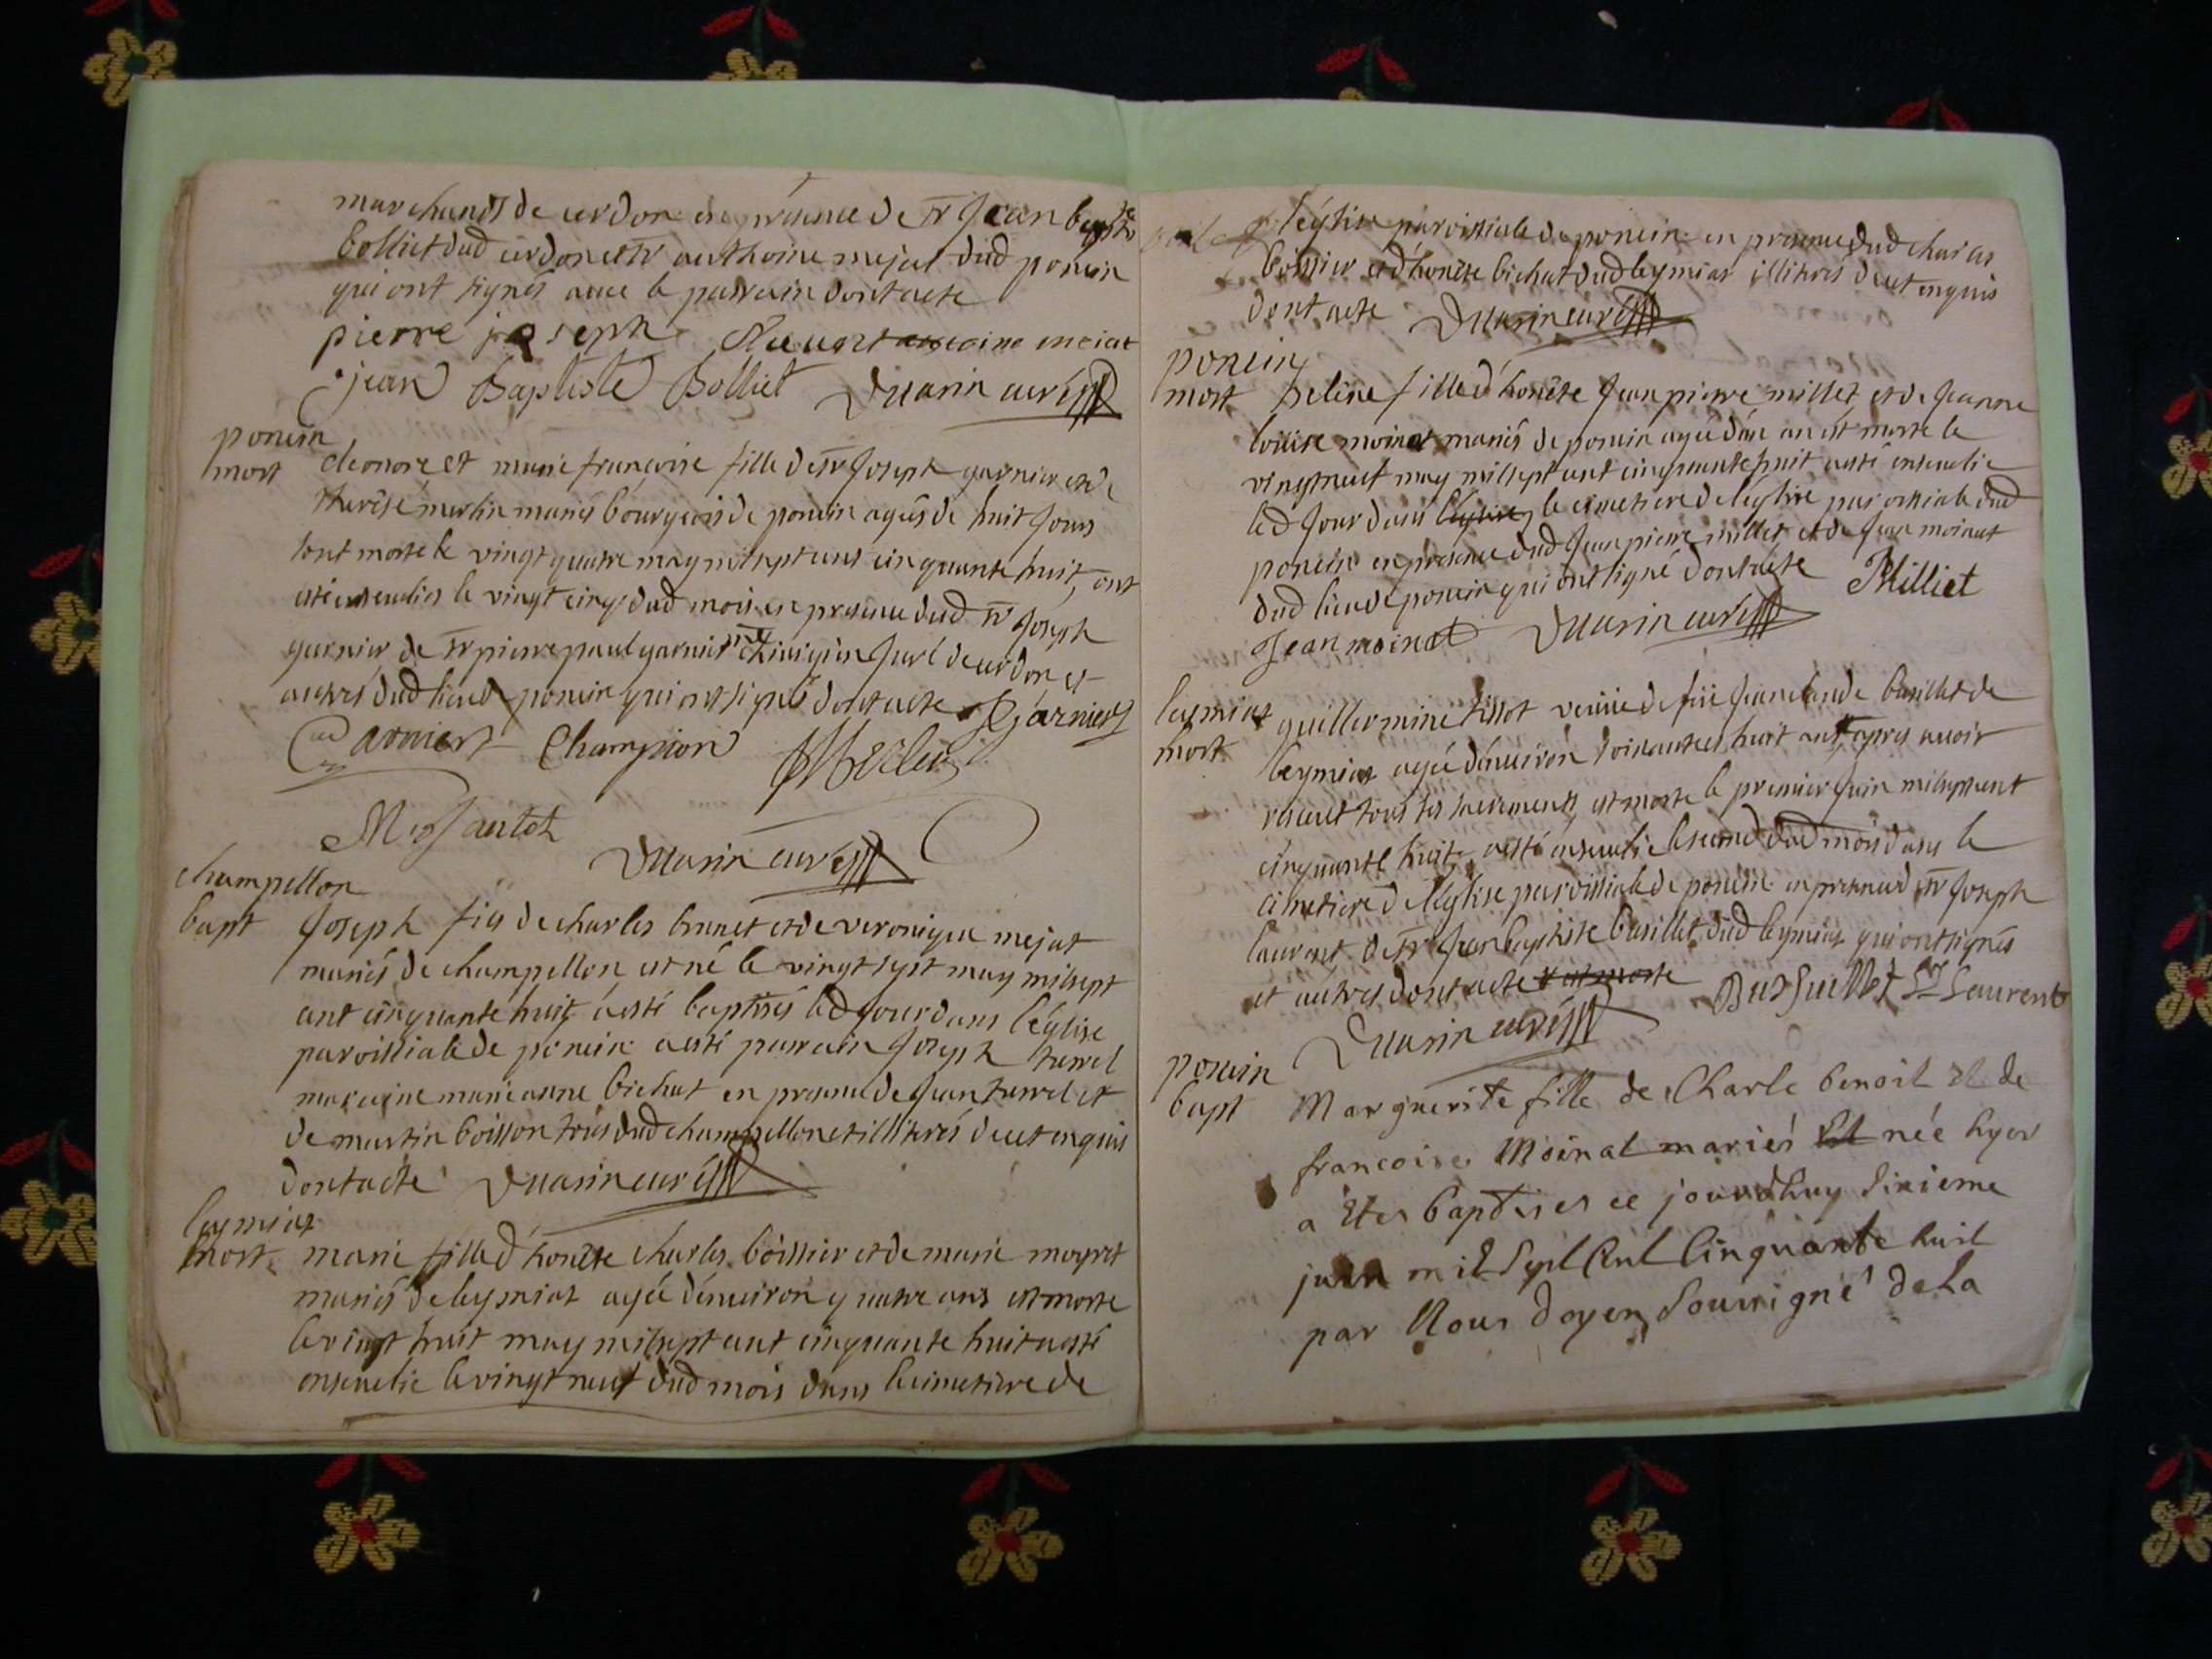 marchands de cerdon en présence de sr Jean bapte
bolliet dud cerdon et sr anthoine mejat dud poncin
qui ont signés avec le parrain dont acte
pierre joseph antoine meiat
jean Baptiste Bolliet Duarin curé
poncin
mort eleonore et marie francoise fille de sr Joseph garnier et de
therése merlin mariés bourgeois de poncin agés de huit Jours
sont morte le vingt quatre may mil sept cent cinquante huit, ont
esté ensevelies le vingt cinq dud mois en presence dud sr Joseph
garnier de sr pierre paul garnier me chirurgien Juré de cerdon et
autres dud lieu de poncin qui ont signé dont acte Garnier
Garnier Champion
Duarin curé
champellon
bapt Joseph fils de charles brunet et de veronique mejat
mariés de champellon est né le vingt sept may mil sept
cent cinquante huit, a esté baptisés led Jour dans l'église
paroissiale de poncin a esté parrain Joseph turrel
maraine marieanne bichat en presence de Jean turrel et
de martin boisson tous dud champellon et illiterés de ce enquis
dont acte Duarin curé
leymiat
mort marie fille d'honéte charles boissier et de marie
mariés de leymiat agée d'environ quatre ans est morte
le vingt huit may mil sept cent cinquante huit a esté
ensevelie le vingt neuf dud mois dans le cimetiere de
l'église paroissiale de poncin en presence dud charles
boissier et d'honéte bichat dud leymiat illiterés de ce enquis
dont acte Duarin curé
poncin
mort fille d'honéte Jean pierre millet et de Jeanne
loüise moinat mariés de poncin agée d'un an est morte le
vingt neuf may mil sept cent cinquante huit a esté ensevelie
led Jour dans l'église le cimetiere de l'église paroissiale dud
poncin en presence dud Jean pierre millet et de Jean moinat
dud lieu de poncin qui ont signé dont acte Milliet
Jean moinat Duarin curé
leymiat guillermine tissot veuve de feu Jean claude basillet de
mort leymiat agée d'environ soixante et huit ans après avoir
receut tous les sacrements est morte le premier Juin mil sept cent
cinquante huit, a esté ensevelie le second dud mois dans le
cimetiere de l'église paroissiale de poncin en presence de sr Joseph
laurent de sr Jean baptiste basillet dud leymiat qui ont signés
et autres dont acte est morte Laurent
Duarin curé
poncin
bapt Marguerite fille de Charle benoit et de
francoise Moinat mariés Est née hyer
a Eter baptiser ce jourdhuy Sixieme
juin mil Sept Cent Cinquante huit
par Nous doyen Soussigné de la